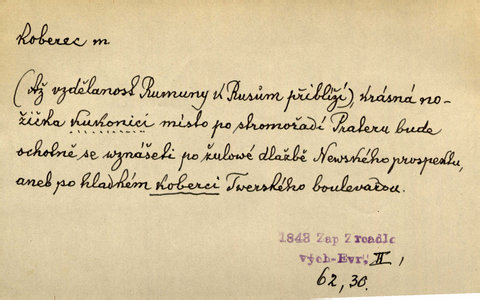 Koberec m
(Až vzdělanost Rumuny k Rusům přiblíží), krásná no-
žička kukonici místo po stromořadí Prateru bude
ochotně se wznášeti po žulowé dlažbě Newského prospektu,
aneb po hladkém koberci Twerského boulevardu.
1843 Zap Zrcadlo
vých-Evr, II,
62, 30.